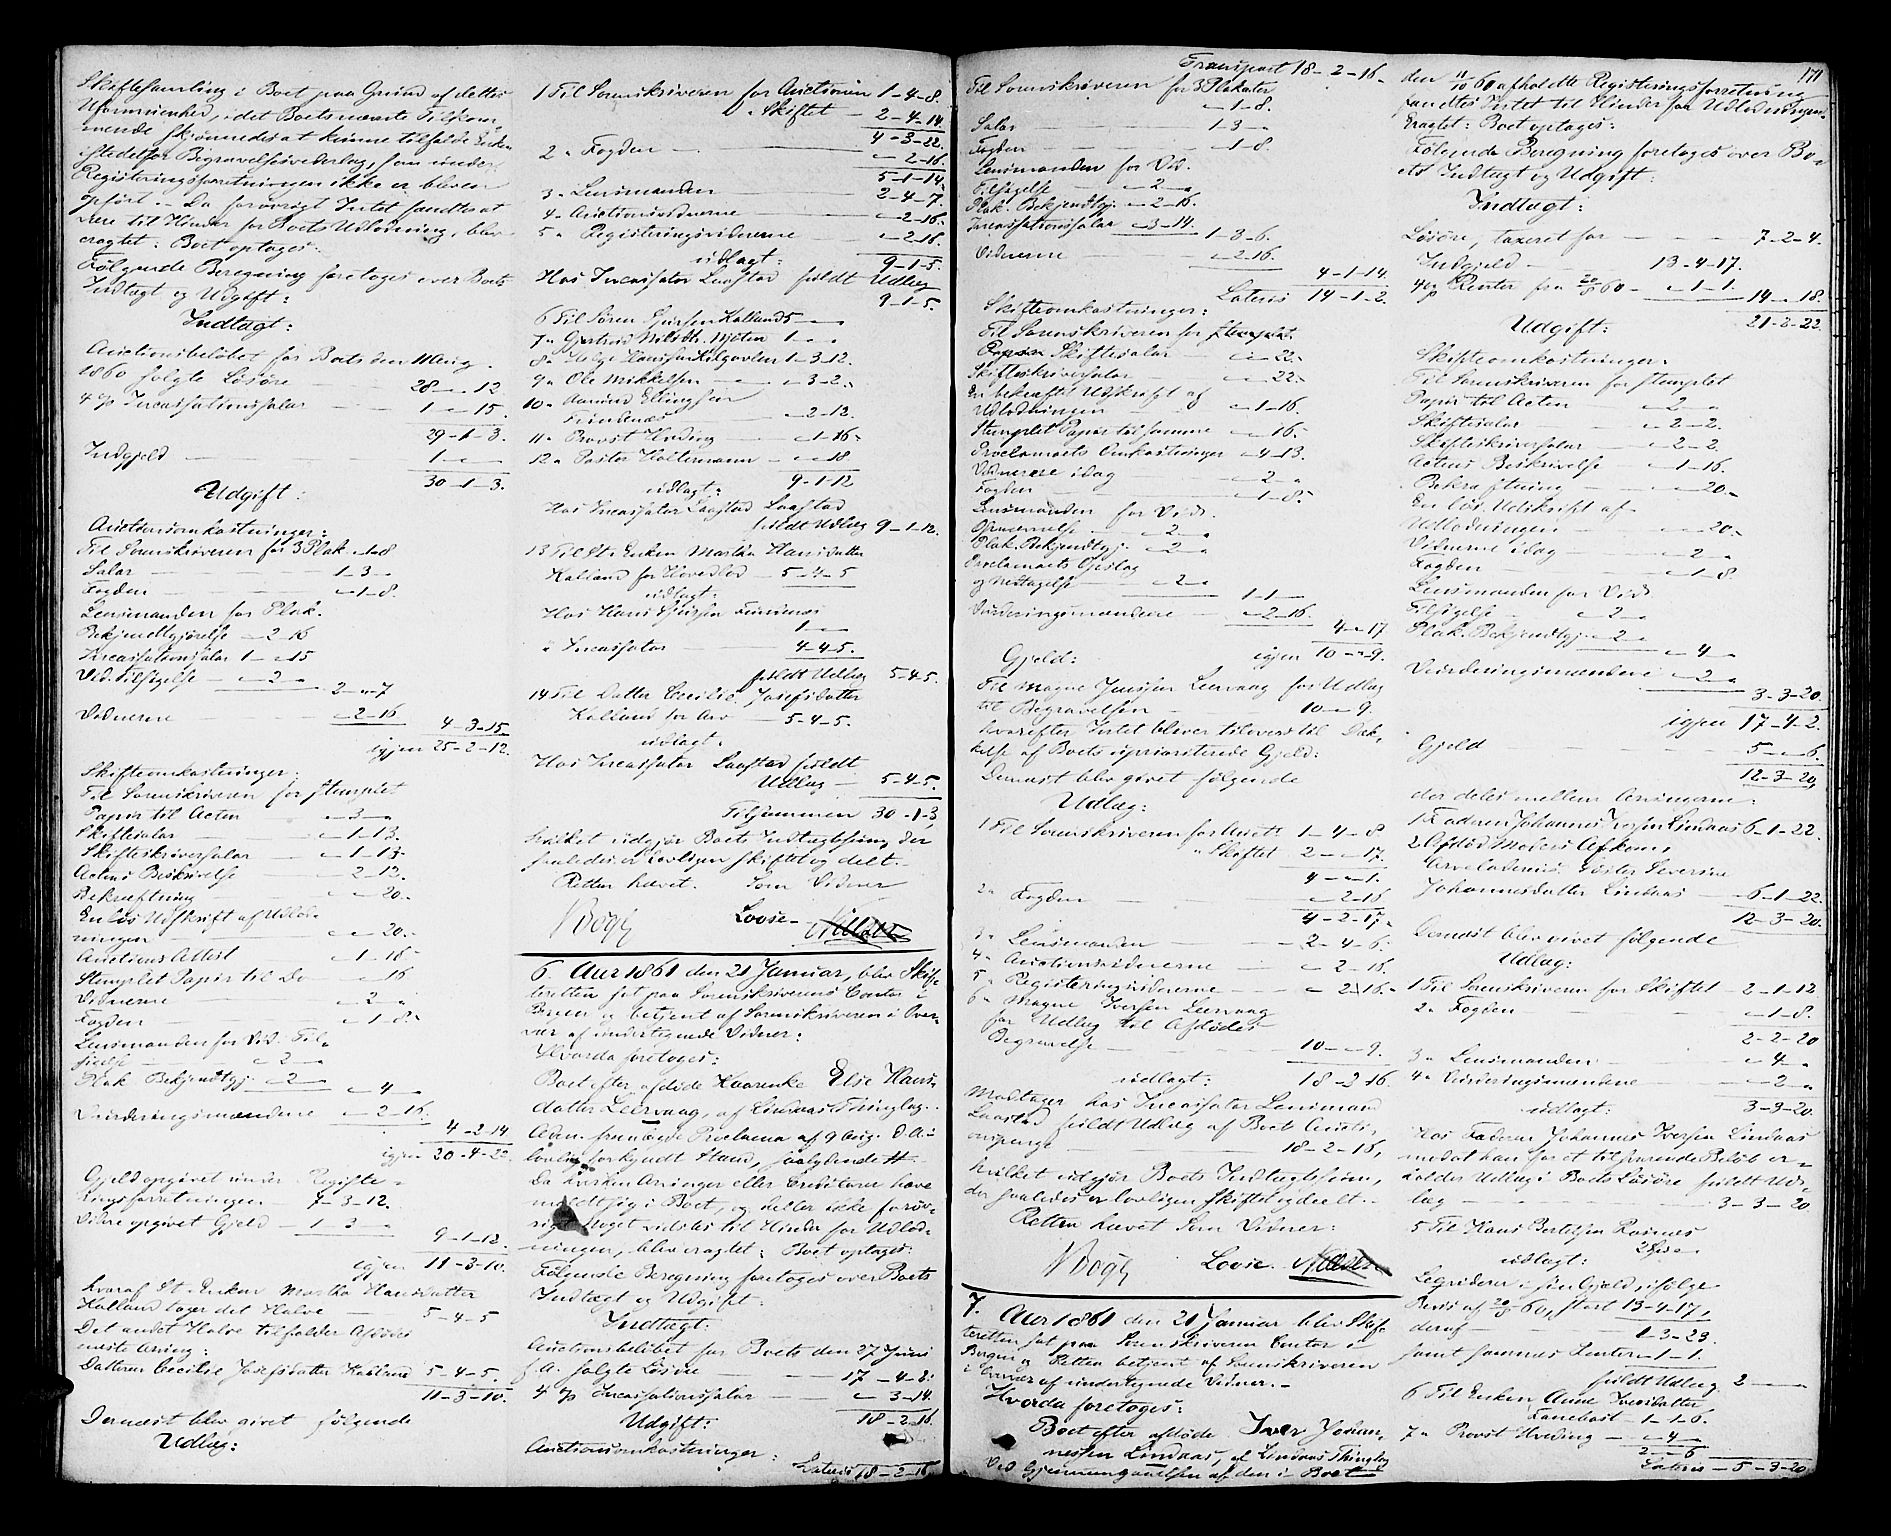 Skiftesamling i Boet paa Grund af dettes
Uformuenhed, idet Boets nærmeste Tilkom-
mende skjønnedes at kunne tilfalde Enken
istedetfor Begravelsesvederlag, som under
Registreringsforretningen ikke er bleven
opført. - Da forøvrigt Intet fandtes at
være til Hinder for Boets Udlodning, blev
eragtet: Boet optages:
Følgende Beregning foretages over Boets
Indtægt og Udgift:
Indtægt:
Auctionsbeløbet for Boets den 11 Aug.
1860 solgte Løsøre 28 - " - 12
4 % Incassationssalar 1 - " - 15.
29 - 1 - 3.
Indgjeld 1 - " - "
30 - 1 - 3.
Udgift:
Auctionsomkostninger:
Til Sorenskriveren for 3 Plak. " - 1 - 8
Salar 1 - 3 - "
Fogden " - 1 - 8.
Lensmanden for Plak.
Bekjendtgjørelse " - 2 - 16
Incassationssalar 1 - " - 15
Vid. Tilsigelse " - 2 - "
2 - " - 7
Vidnerne " - 2 - 16
4 - 3 - 15
igjen 25 - 2 - 12.
Skifteomkostninger:
Til Sorenskriveren for stemplet
Papir til Acten " - 3 - "
Skiftesalar " - 1 - 13.
Skifteskriversalar " - 1 - 13.
Actens Beskrivelse " - 2 - 12.
Bekræftning " - " - 20.
En løs Udskrift af Udlod-
ningen " - " - 20.
Auctions Attest " - 1 - 18
Stemplet Papir til Do " - " - 16
Vidnerne " - 2 - "
Fogden " - 1 - 8.
Lensmanden for Vid. Til-
sigelse " - 2 - "
Plak. Bekjendtgj. " - 2 - "
" - 4 - "
Vurderingsmændene " - 2 - 16.
4 - 2 - 14
igjen 20 - 4 - 22.
Gjeld opgivet under Registe-
ringsforretningen 7 - 3 - 12.
Videre opgivet Gjeld 1 - 3 - "
9 - 1 - 12.
igjen 11 - 3 - 10.
hvoraf St. Enken Martha Hansdatter
Kalland tager det Halve 5 - 4 - 5
Det andet Halve tilfalder Afdødes
eneste Arving:
Datteren Cecilie Josefsdatter Kalland 5 - 4 - 5.
11 - 3 - 10.
Dernæst blev givet følgende
Udlæg:
1 Til Sorenskriveren for Auctionen 1 - 4 - 8.
" Skiftet 2 - 4 - 14.
4 - 3 - 22.
2 " Fogden " - 2 - 16.
5 - 1 - 14.
3 " Lensmanden 2 - 4 - 7.
4 " Auctionsvidnerne " - 2 - 16.
5 " Registeringsvidnerne " - 2 - 16.
udlagt: 9 - 1 - 5.
Hos Incassator Laastad fuldt Udlæg
9 - 1 - 5.
6 Til Søren Kalland 5 - " - "
7 " Mjøten 1 - " - "
8 " Helge Hansen 1 - 3 - 12.
9 " Ole Mikkelsen " - 3 - 2.
10 " Aamund Ellingsen
Fondenæs " - 2 - 12.
11 " Provst Hveding " - 1 - 16.
12 " Pastor Holtermann " - " - 18
udlagt: 9 - 1 - 12
Hos Incassator Laastad
fuldt Udlæg 9 - 1 - 12.
13 Til St. Enken Martha Hansdatter
Kalland for Hovedlod 5 - 4 - 5
udlagt:
Hos Hans
1 - " - "
" Incassator 4 - 4 - 5.
fuldt Udlæg 5 - 4 - 5.
14 Til Datter Cecilie Josefsdatter
Kalland for Arv 5 - 4 - 5.
udlagt.
Hos Incassator Laastad fuldt
Udlæg 5 - 4 - 5.
Tilsammen 30 - 1 - 3,
hvilket udgjør Boets Indtægtssum, der
saaledes er lovligen skiftet og delt.
Retten hævet. Som Vidner
Loose.
6. Aar 1861 den 21 Januar, blev Skif-
teretten sat paa Sorenskriverens Contor i
Bergen og betjent af Sorenskriveren i Over-
vær af undertegnede Vidner:
Hvorda foretoges:
Boet efter afdøde Kaarenke Elie Hans-
datter Leervaag, af Lindaas Thinglag.
Adm. fremlagde Proclama af 9 Aug. d. A.
lovlig forkyndt
Da hverken Arvinger eller Creditorer have
meldt sig i Boet, og deller ikke forøv-
rigt Noget vidstes til Hinder for Udlod-
ningen, blev eragtet: Boet optages.
Følgende Beregning foretages over Boets
Indtægt og Udgift:
Indtægt:
Auctionsbeløbet for Boets den 27 Juni
f. A. solgte Løsøre 17 - 4 - 2.
4 % Incassationssalar " - 3 - 14.
18 - 2 - 16.
Udgift:
Auctionsomkostninger:
Lateris 18 - 2 - 16
Transport 18 - 2 - 16.
Til Sorenskriveren for 3 Plakater
" - 1 - 8.
Salar 1 - 3 - "
Fogden " - 1 - 8.
Lensmanden for Vid.
Tilsigelse " - 2 - "
Plak. Bekjendtgj. " - 2 - 16.
Incassationssalar " - 3 - 14.
1 - 3 - 6.
Vidnerne " - 2 - 16.
4 - 1 - 14.
Lateris 14 - 1 - 2.
Skifteomkostninger:
Til Sorenskriveren for
Skiftesalar " - " - 22.
Skifteskriversalar " - " - 22.
En bekræftet Udskrift af
Udlodningen " - 1 - 16.
Stemplet Papir til samme " - " - 16.
Proclamaets Omkostninger " - 4 - 13.
Vidnerne idag " - 2 - "
Fogden " - 1 - 8.
Lensmanden for Vids.
" - 2 - "
Plak. Bekjendtgj. " - 2 - "
Proclamaets Opslag
og Nedtagelse " - 2 - "
1 - 1 - "
Vurderingsmændene " - 2 - 16.
4 - " - 17
igjen 10 - " - 9.
Gjeld:
Til Magne Iversen Leervaag for Udlæg
til Begravelsen 10 - " - 9.
hvorefter Intet bliver tilovers til Dæk-
kelse af Boets uprioriterede Gjeld:
Dernæst blev givet følgende
Udlæg:
1 Til Sorenskriveren for Auct. 1 - 4 - 8
" Skiftet 2 - " - 17.
4 - " - 1.
2 " Fogden " - 2 - 16
4 - 2 - 17.
3 " Lensmanden 2 - 4 - 6.
4 " Auctionsvidnerne " - 2 - 16.
5 " Registeringsvidnerne " - 2 - 16.
6 " Magne Iversen Leervaag
for Udlæg til Afdødes
Begravelse 10 - " - 9.
udlagt: 18 - 2 - 16.
Modtager hos Incassator Lensmand
Laastad fuldt Udlæg af Boet Aucti-
onspenge 18 - 2 - 16,
hvilket udgjør Boets Indtægtssum,
der saaledes er lovligen skiftet og deelt.
Retten hævet Som Vidner:
Loose.
7. Aar 1861 den 21 Januar blev Skif-
teretten sat paa Sorenskriverens Contor i
Bergen og Retten betjent af Sorenskriveren
i Overvær af undertegnede Vidner.
Hvorda foretoges:
Boet efter afdøde Iver Johan-
nessen Lindaas, af Lindaas Thinglag
Ved Gjennemgaaelsen af den i Boet
171
den 11/10 60 afholdte Registeringsforretning
fandtes Intet til Hinder for Udlodningen.
Eragtet: Boet optages:
Følgende Beregning foretages over Bo-
ets Indtægt og Udgift:
Indtægt:
Løsøre, taxeret for 7 - 2 - 4.
Indgjeld 13 - 4 - 17.
4 % Renter fra 20/8 60 " - 1 - 1.
14 - " - 18.
21 - 2 - 22.
Udgift:
Skifteomkostninger.
Til Sorenskriveren for stemplet
Papir til Acten " - 2 - "
Skiftesalar " - 2 - 2.
Skifteskriversalar " - 2 - 2.
Actens Beskrivelse " - 1 - 16.
Bekræftning " - " - 20.
En løs Udskrift af
Udlodningen " - " - 20.
Vidnerne idag " - 2 - "
Fogden " - 1 - 8.
Lensmanden for Vid.
Tilsigelse " - 2 - "
Plak. Bekjendtgj. " - 2 - "
" - 4 - "
Vurderingsmændene " - 2 - "
3 - 3 - 20.
igjen 17 - 4 - 2.
Gjeld 5 - " - 6.
12 - 3 - 20,
der deles mellem Arvingerne:
1 Faderen Johannes Iversen Lindaas 6 - 1 - 22.
2 Afdød Moders Afkom,
Arveladerens Søster Severine
Johannesdatter Lindaas 6 - 1 - 22.
12 - 3 - 20.
Dernæst blev givet følgende
Udlæg:
1 Til Sorenskriveren for Skiftet 2 - 1 - 12
2 " Fogden " - 1 - 8.
2 - 2 - 20
3 " Lensmanden " - 4 - "
4 " Vurderingsmændene " - 2 - "
udlagt: 3 - 3 - 20.
Hos Faderen Johannes Iversen Lindaas
mod at han foret tilsvarende Beløb er-
holder Udlæg i Boets Løsøre fuldt Ud-
læg 3 - 3 - 20
5 Til Hans Bertelsen
udlagt:
i sin Gjeld, ifølge
Bevis af 20/8 60, stort 13 - 4 - 17,
deraf 1 - 3 - 23.
samt sammes Renter " - 1 - 1.
fuldt Udlæg 2 - " - "
6 Til Enken Anne Iversdatter
Fanebust 1 - 1 - 6.
7 " Provst Hveding " - 4 - "
2 - " - 6
Lateris 5 - 3 - 20